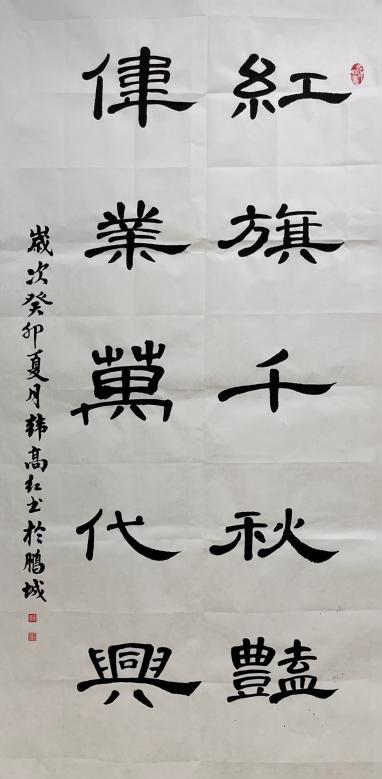 紅旗千秋豔
偉業萬代興
嵗次癸卯夏月韩高红书於鵬城